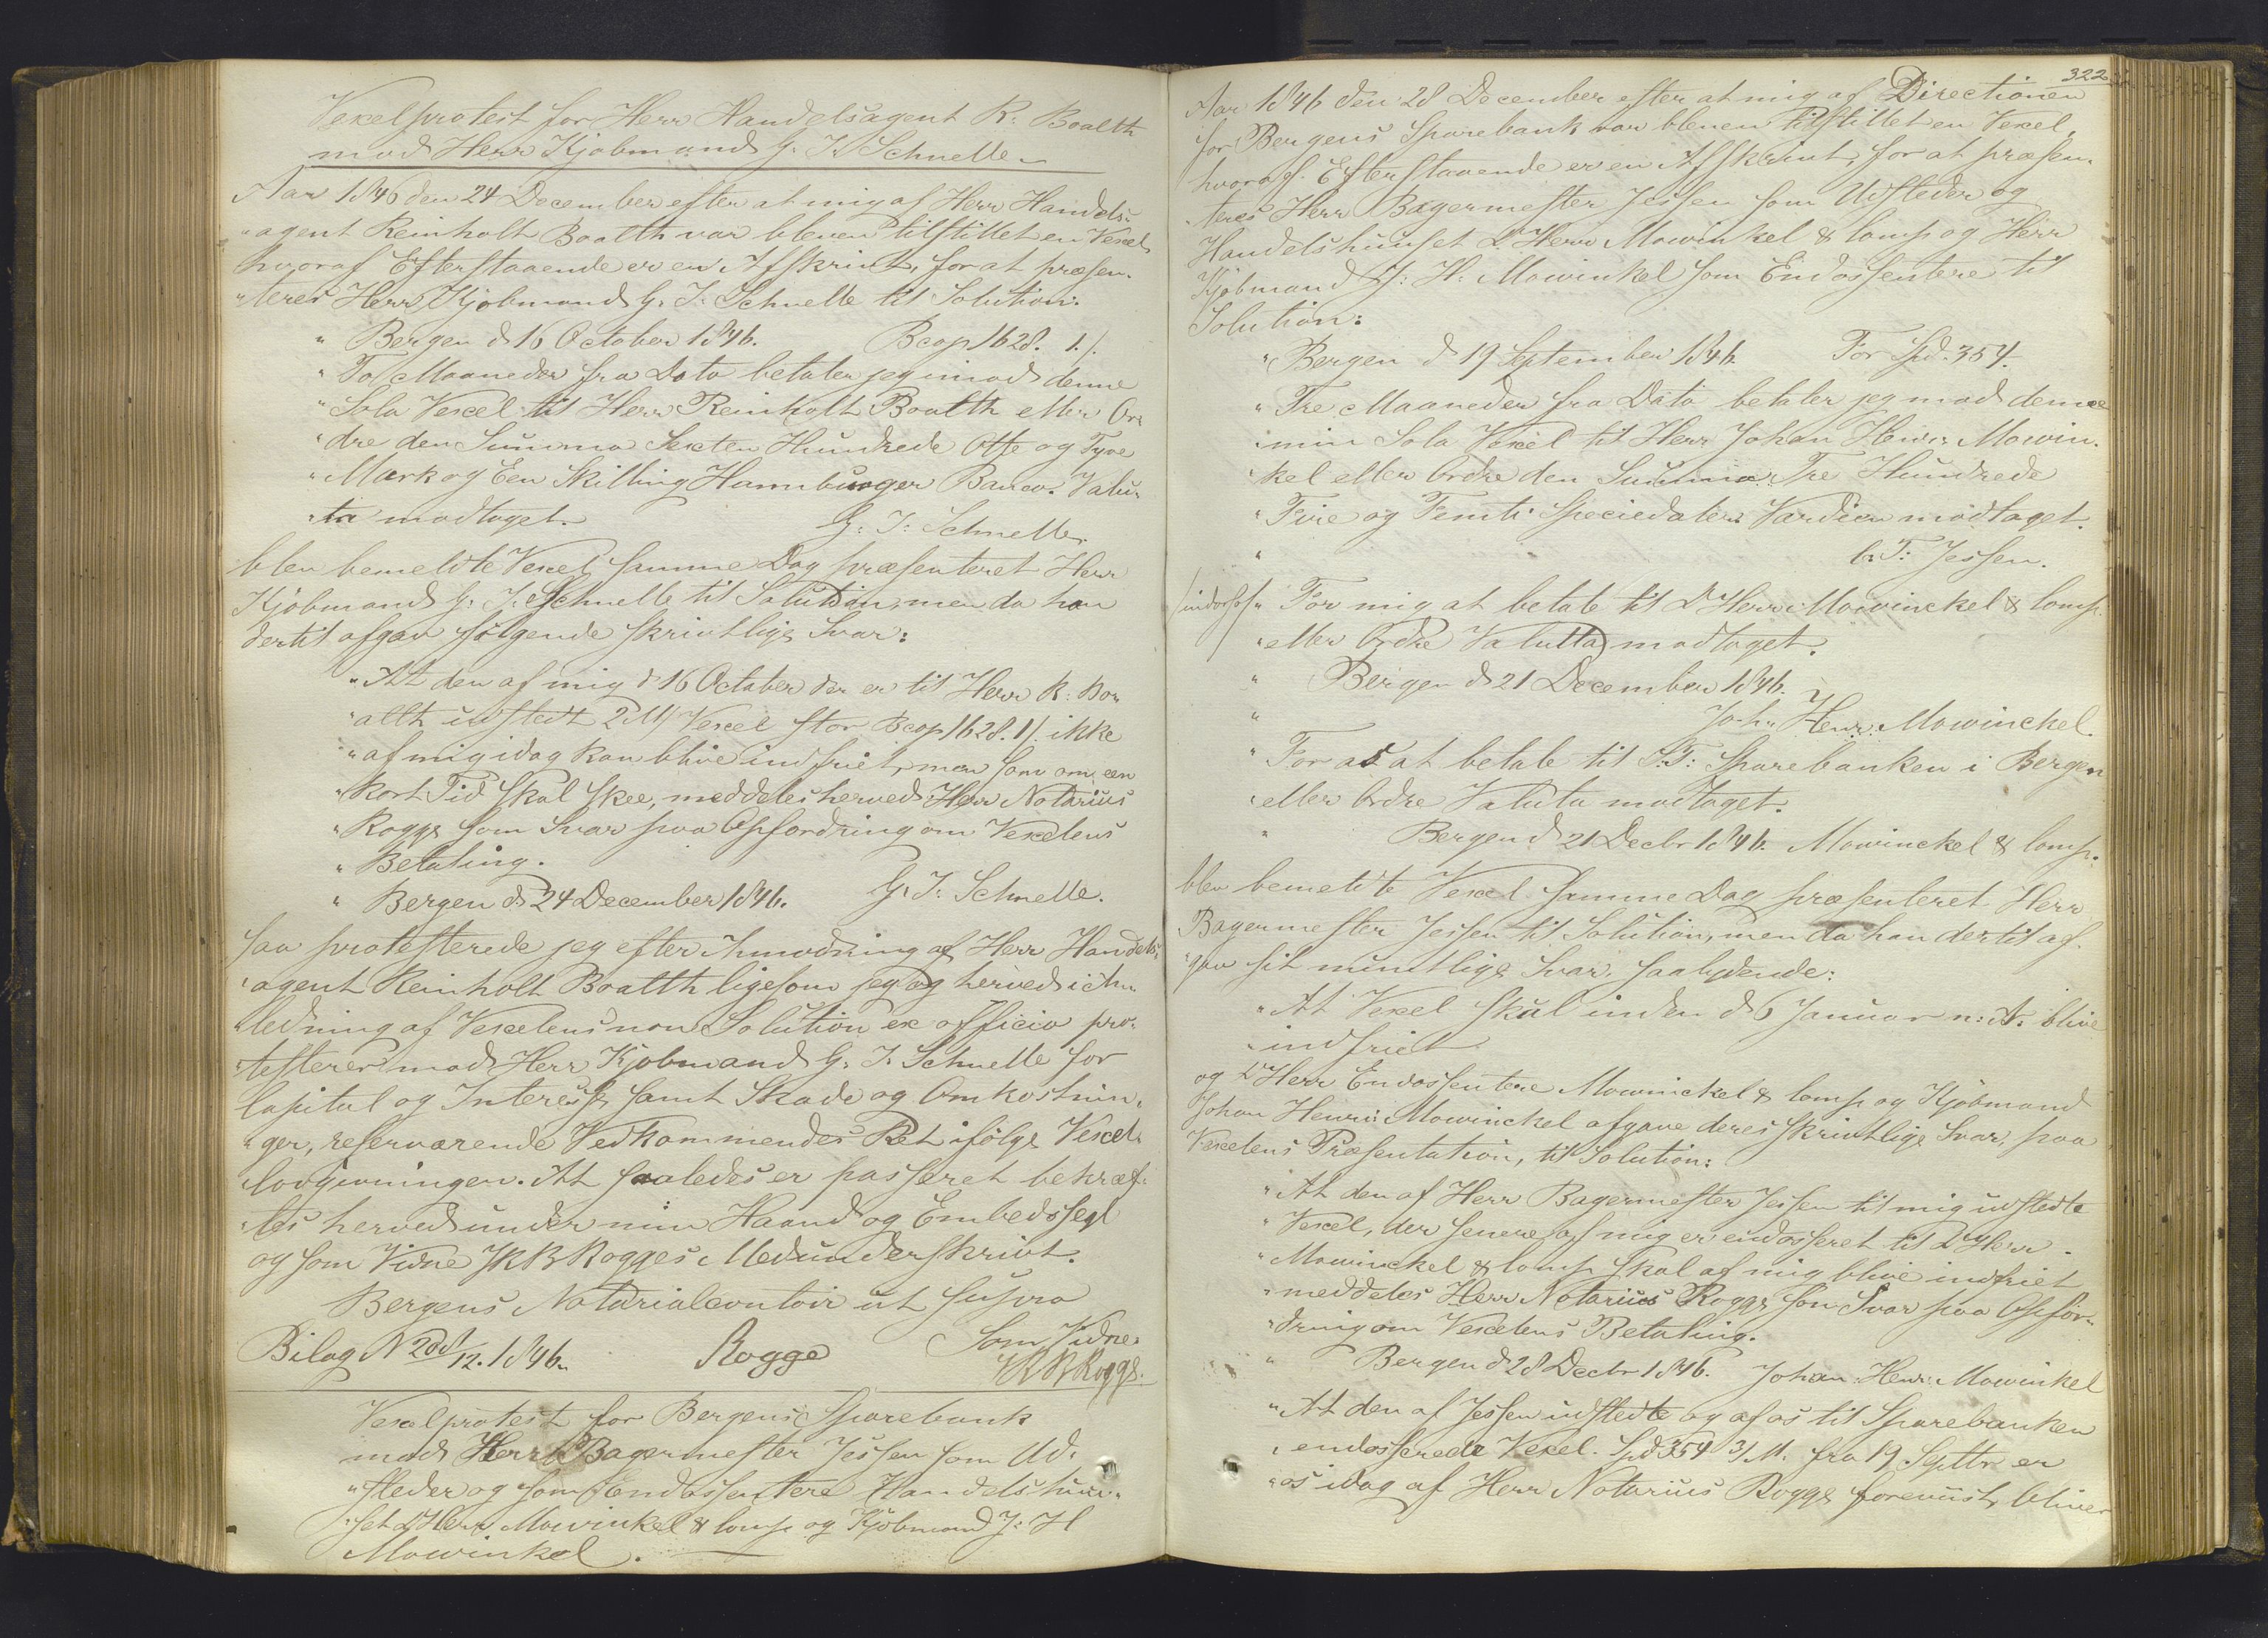 Vexelprotest for Herr Handelsagent R. Boalth
mod Herr Kjøbmand G. J. Schnelle
Aar 1846 den 24 December efter at mig af Herr Handels-
"agent Reinholt Boalth var bleven tilstillet en Vexel
hvoraf Efterstaaende er en Afskrivt, for at præsen-
"teres Herr Kjøbmand G. J. Schnelle til Solution.
" Bergen d 16 October 1846. Bcop 1628. 1/.
" To Maaneder fra Dato betaler jeg imod denne
" Sola Vexel til Herr Reinholt Boalth eller Or-
"dre den Summa Sexten Hundrede Otte og Tyve
" Mark og Een Skilling Hamburger Banco. Valu-
"ta modtaget. G: J: Schnelle.
blev bemeldte Vexel samme Dag præsenteret Herr
Kjøbmand G. J. Schnelle til Solution, men da han
dertil afgav følgende skrivtlige Svar:
" At den af mig d 16 October der er til Herr R. Bo-
"alth udstedt 2 M/ Vexel stor Bcop 1628. 1/. ikke
" af mig idag kan blive indfriet, men som om een
" kort Tid skal skee, meddeles herved Herr Notarius
" Rogge som Svar paa Opfordring om Vexelens
" Betaling.
" Bergen d 24 December 1846. G. J. Schnelle.
saa protesterede jeg efter Anmodning af Herr Handels-
"agent Reinholt Boalth ligesom jeg og herved i An-
"ledning af Vexelens non Solution ex officio pro-
"testerer mod Herr Kjøbmand G. J. Schnelle for
Capital og Interesse samt Skade og Omkostnin-
"ger, reserverende Vedkommendes Ret ifølge Vexel-
"lovgivningen. At saaledes er passeret bekræf-
"tes herved under min Haand og Embedssegl
og som Vidne J K B Rogges Medunderskrivt.
Bergens Notarialcontoir ut supra
Som Vidne
Bilag N 208/12. 1846. Rogge J K B Rogge.
Vexelprotest for Bergens Sparebank
mod Herr Bagermester Jessen som Ud-
"steder og som Endossentere Handelshuu-
"set D'Herr Mowinkel & Comp og Kjøbmand J: H
Mowinkel.
322
Aar 1846 den 28 December efter at mig af Directionen
for Bergens Sparebank var bleven tilstillet en Vexel,
hvoraf Efterstaaende er en Afskrivt, for at præsen-
"teres Herr Bagermester Jessen som Udsteder og
Handelshuuset D'Herr Mowinkel & Comp og Herr
Kjøbmand J: H: Mowinkel som Endossentere til
Solution:
" Bergen d 19 September 1846. For Spd. 354.
" Tre Maaneder fra Dato betaler jeg mod denne
" min Sola Vexel til Herr Johan Henr: Mowin-
"kel eller Ordre den Summa Tre Hundrede
" Fire og Femti Speciedaler. Værdien modtaget.
" C: T: Jessen.
indosso " For mig at betale til D'Herr Mowinckel & Comp.
" eller Ordre Valutta modtaget.
" Bergen d 21 December 1846.
" Joh: Henr: Mowinckel.
" For os at betale til S. T: Sparebanken i Bergen
" eller Ordre Valuta modtaget.
" Bergen d 21 Decbr 1846. Mowinckel & Comp.
blev bemeldte Vexel samme Dag præsenteret Herr
Bagermester Jessen til Solution, men da han dertil af-
"gav sit mundtlige Svar, saalydende:
" At Vexel skal inden d 6 Januar n: A: blive
" indfriet
og D'Herr Endossentere Mowinckel & Comp og Kjøbmand
Johan Henri: Mowinckel afgave deres skrivtlige Svar, paa
Vexelens Præsentation, til Solution:
" At den af Herr Bagermester Jessen til mig udstedte
" Vexel, der senere af mig er endosseret til D'Herr
" Mowinckel & Comp skal af mig blive indfriet
" meddeles Herr Notarius Rogge som Svar paa Opfor-
"dring om Vexelens Betaling.
" Bergen d 28 Decbr 1846. Johan Henr: Mowinkel
" At den af Jessen udstedte og af os til Sparebanken
" endosserede Vexel. Spd 354 3/M. fra 19 Septbr er
" os idag af Herr Notarius Rogge foreviist, bliver